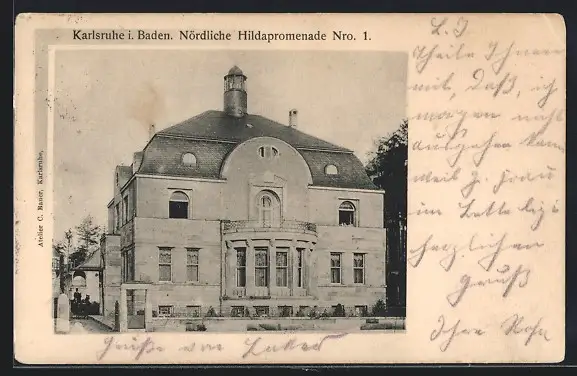 Karlsruhe i. Baden. Nördliche Hildapromenade Nro. 1.
Atelier C. Bauer, Karlsruhe.
L. I
Theile Ihnen
mit, daß, ich
morgen nicht
ausgehen kann
weil g. Frau
im Bette ligt
herzlichen
gruß
Ihre
Grüße von